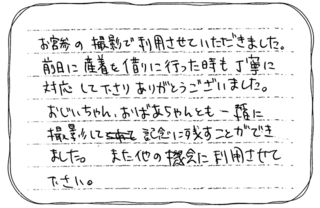 お宮参の撮影で利用させていただきました。
前日に産着を借りに行った時も丁寧に
対応して下さりありがとうございました。
おじいちゃん、おばあちゃんとも一緒に
撮影して記念に残すことができ
ました。 また他の機会に利用させて
下さい。